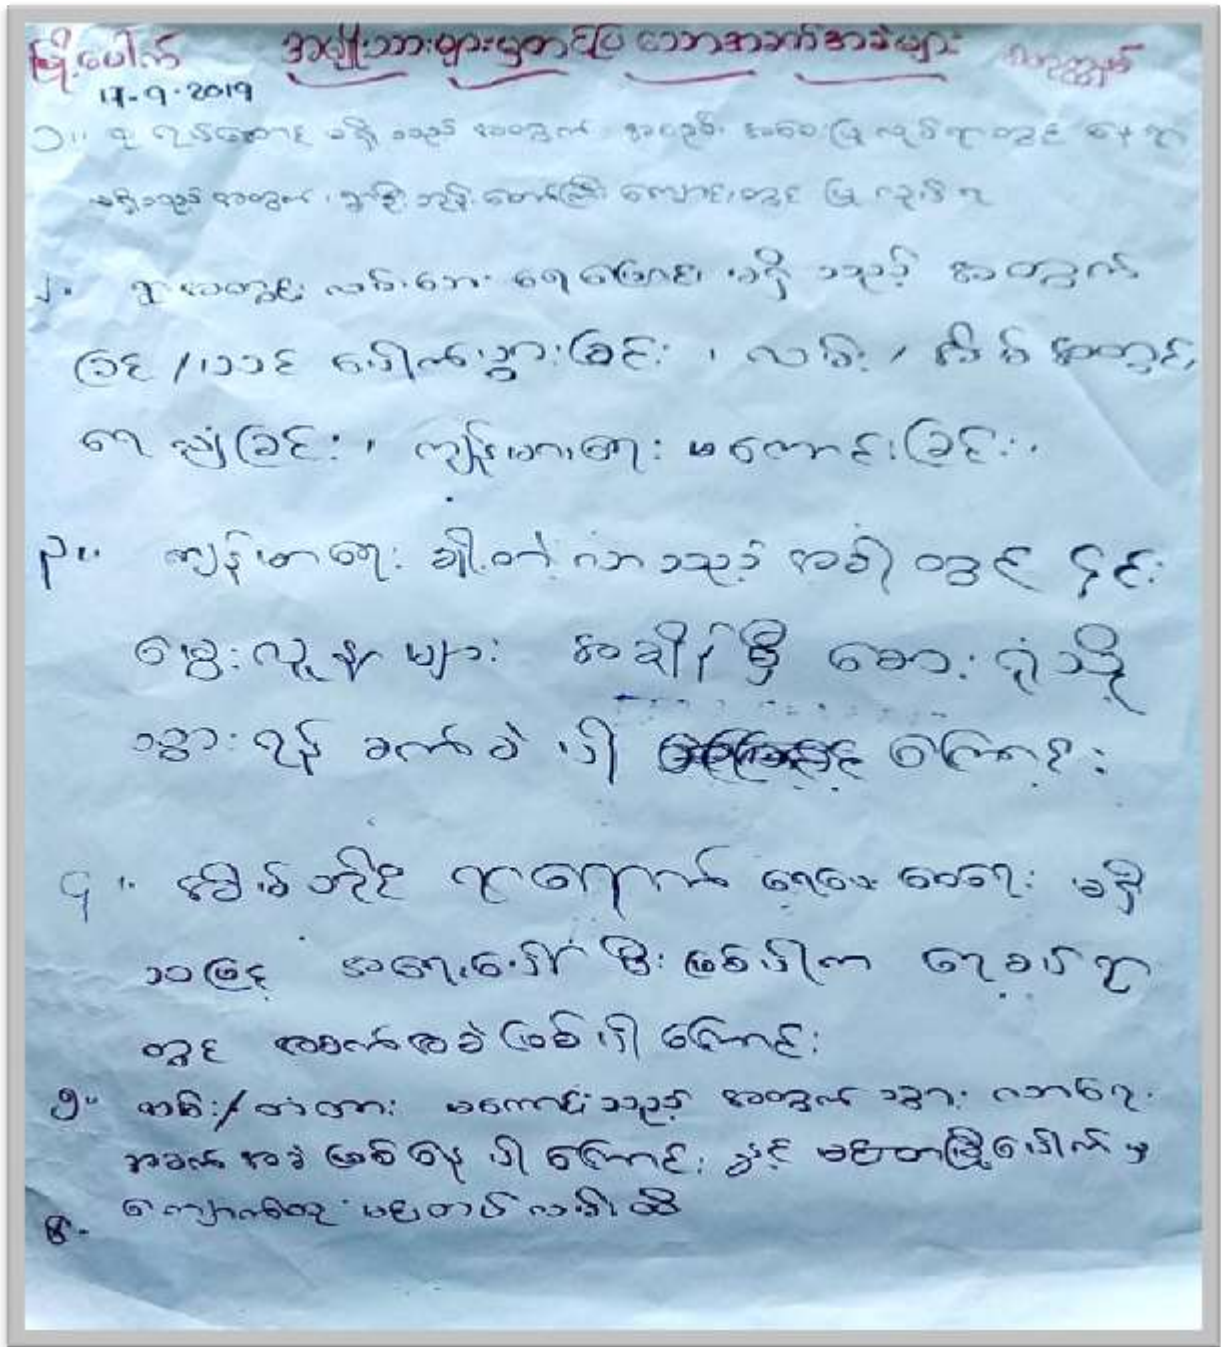 မြို့ပေါက် အမျိုးသားများမှတင်ပြသောအခက်အခဲများ
17-9-2019
၁။ ရုံ မရှိသည့်အတွက် အစည်းအဝေးပြုလုပ်ရာတွင် နေရာ
မရှိသည့်အတွက်၊ ရွာဦးဘုန်းတော်ကြီးကျောင်းတွင် ပြုလုပ်ရ
၂။ ရွာအတွင်း လမ်းဘေး ရေမြောင်း မရှိသည့် အတွက်
ခြင်/ယင် ပေါက်ပွားခြင်း၊ လမ်း၊ အိမ်အတွင်း
ရေလျှံခြင်း၊ ကျန်းမာရေး မကောင်းခြင်း၊
၃။ ကျန်းမာရေး ချို့တဲ့လာသည့် အခါတွင် ၎င်း
မွေးလူနာများ အချိန်မှီ ဆေးရုံသို့
သွားရန် ခက်ခဲပါ ကြောင်း
၄။ အိမ်တိုင် ရာရောက် ရေပေးဝေရေး မရှိ
သဖြင့် အရေးပေါ် မီးဖြစ်ပါက ရေခပ်ရာ
တွင် အခက်အခဲဖြစ်ပါကြောင်း
၅။ လမ်း/တံတား မကောင်းသည့် အတွက် သွားလာရေး
အခက်အခဲဖြစ်နေပါကြောင်း နှင့် မြို့ပေါက်မှ
ထိ
၆။